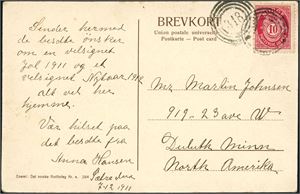 BREVKORT
Union postale universelle
Postkarte – Post card
10
318
Sender hermed
de bedste ønsker
om en velsignet
Jul 1911 og et
velsignet Nytaar 1912
alt vel her
hjemme.
Vær hilset paa
det bedste fra
Anna Hansen
9-12-1911
Mr. Martin Johnsen
919-23 ave W
Duluth Minn
North Amerika
Eneret: Det norske